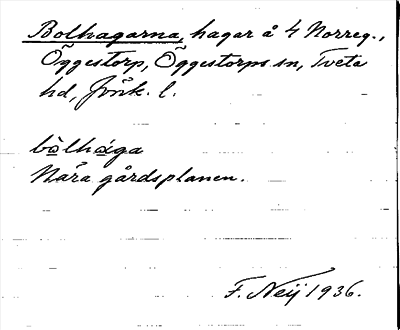 Bolhagarna, hagar å 4 Norreg.,
Öggestorp, Öggestorps sn, Tveta
hd, Jönk. l.
bòlhága
Nära gårdsplanen.
F. Neij 1936.